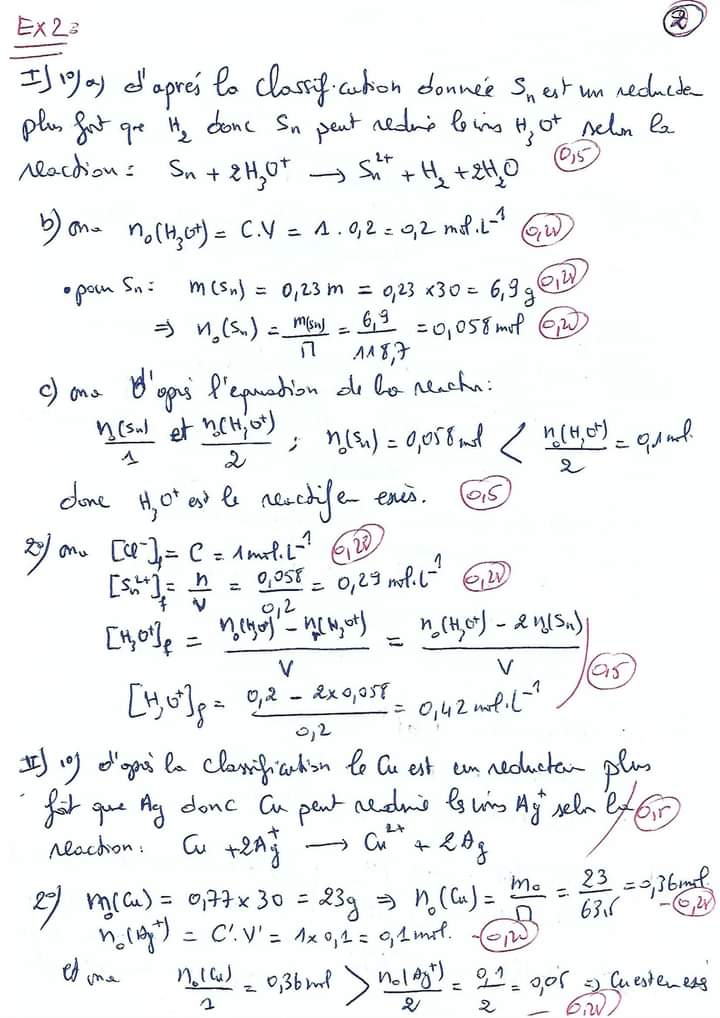 Ex 2:
2
I) 1°) a) d'après la classification donnée Sn est un reducteu
plus fort que H2 donc Sn peut reduire les ions H3O+ selon la
reaction: Sn + 2H3O+ → Sn2+ + H2 + 2H2O 0,5
b) on a n0(H3O+) = C.V = 1 . 0,2 = 0,2 mol.L-1 0,25
• pour Sn: m(Sn) = 0,23 m = 0,23 x 30 = 6,9 g 0,25
⇒ n0(Sn) = m(Sn)/M = 6,9/118,7 = 0,058 mol 0,25
c) on a D'après l'equation de la reactn:
n0(Sn)/1 et n0(H3O+)/2 ; n0(Sn) = 0,058 mol < n0(H3O+)/2 = 0,1 mol.
donc H3O+ est le reactif en excès. 0,5
2°) on a [Cl-]f = C = 1 mol.L-1 0,25
[Sn2+]f = n/V = 0,058/0,2 = 0,29 mol.L-1 0,25
[H3O+]f = n0(H3O+) - nr(H3O+)/V = n0(H3O+) - 2 n0(Sn)/V
[H3O+]f = 0,2 - 2x0,058/0,2 = 0,42 mol.L-1 0,5
II) 1°) d'après la classification le Cu est un reducteur plus
fort que Ag donc Cu peut reduire les ions Ag+ selon la 0,5
reaction: Cu + 2Ag+ → Cu2+ + 2Ag
2°) m0(Cu) = 0,77 x 30 = 23g ⇒ n0(Cu) = m0/M = 23/63,5 = 0,36 mol - 0,25
n0(Ag+) = C'.V' = 1 x 0,1 = 0,1 mol. - 0,25
et on a n0(Cu)/1 = 0,36 mol > n0(Ag+)/2 = 0,1/2 = 0,05 ⇒ Cu est en excès
- 0,25